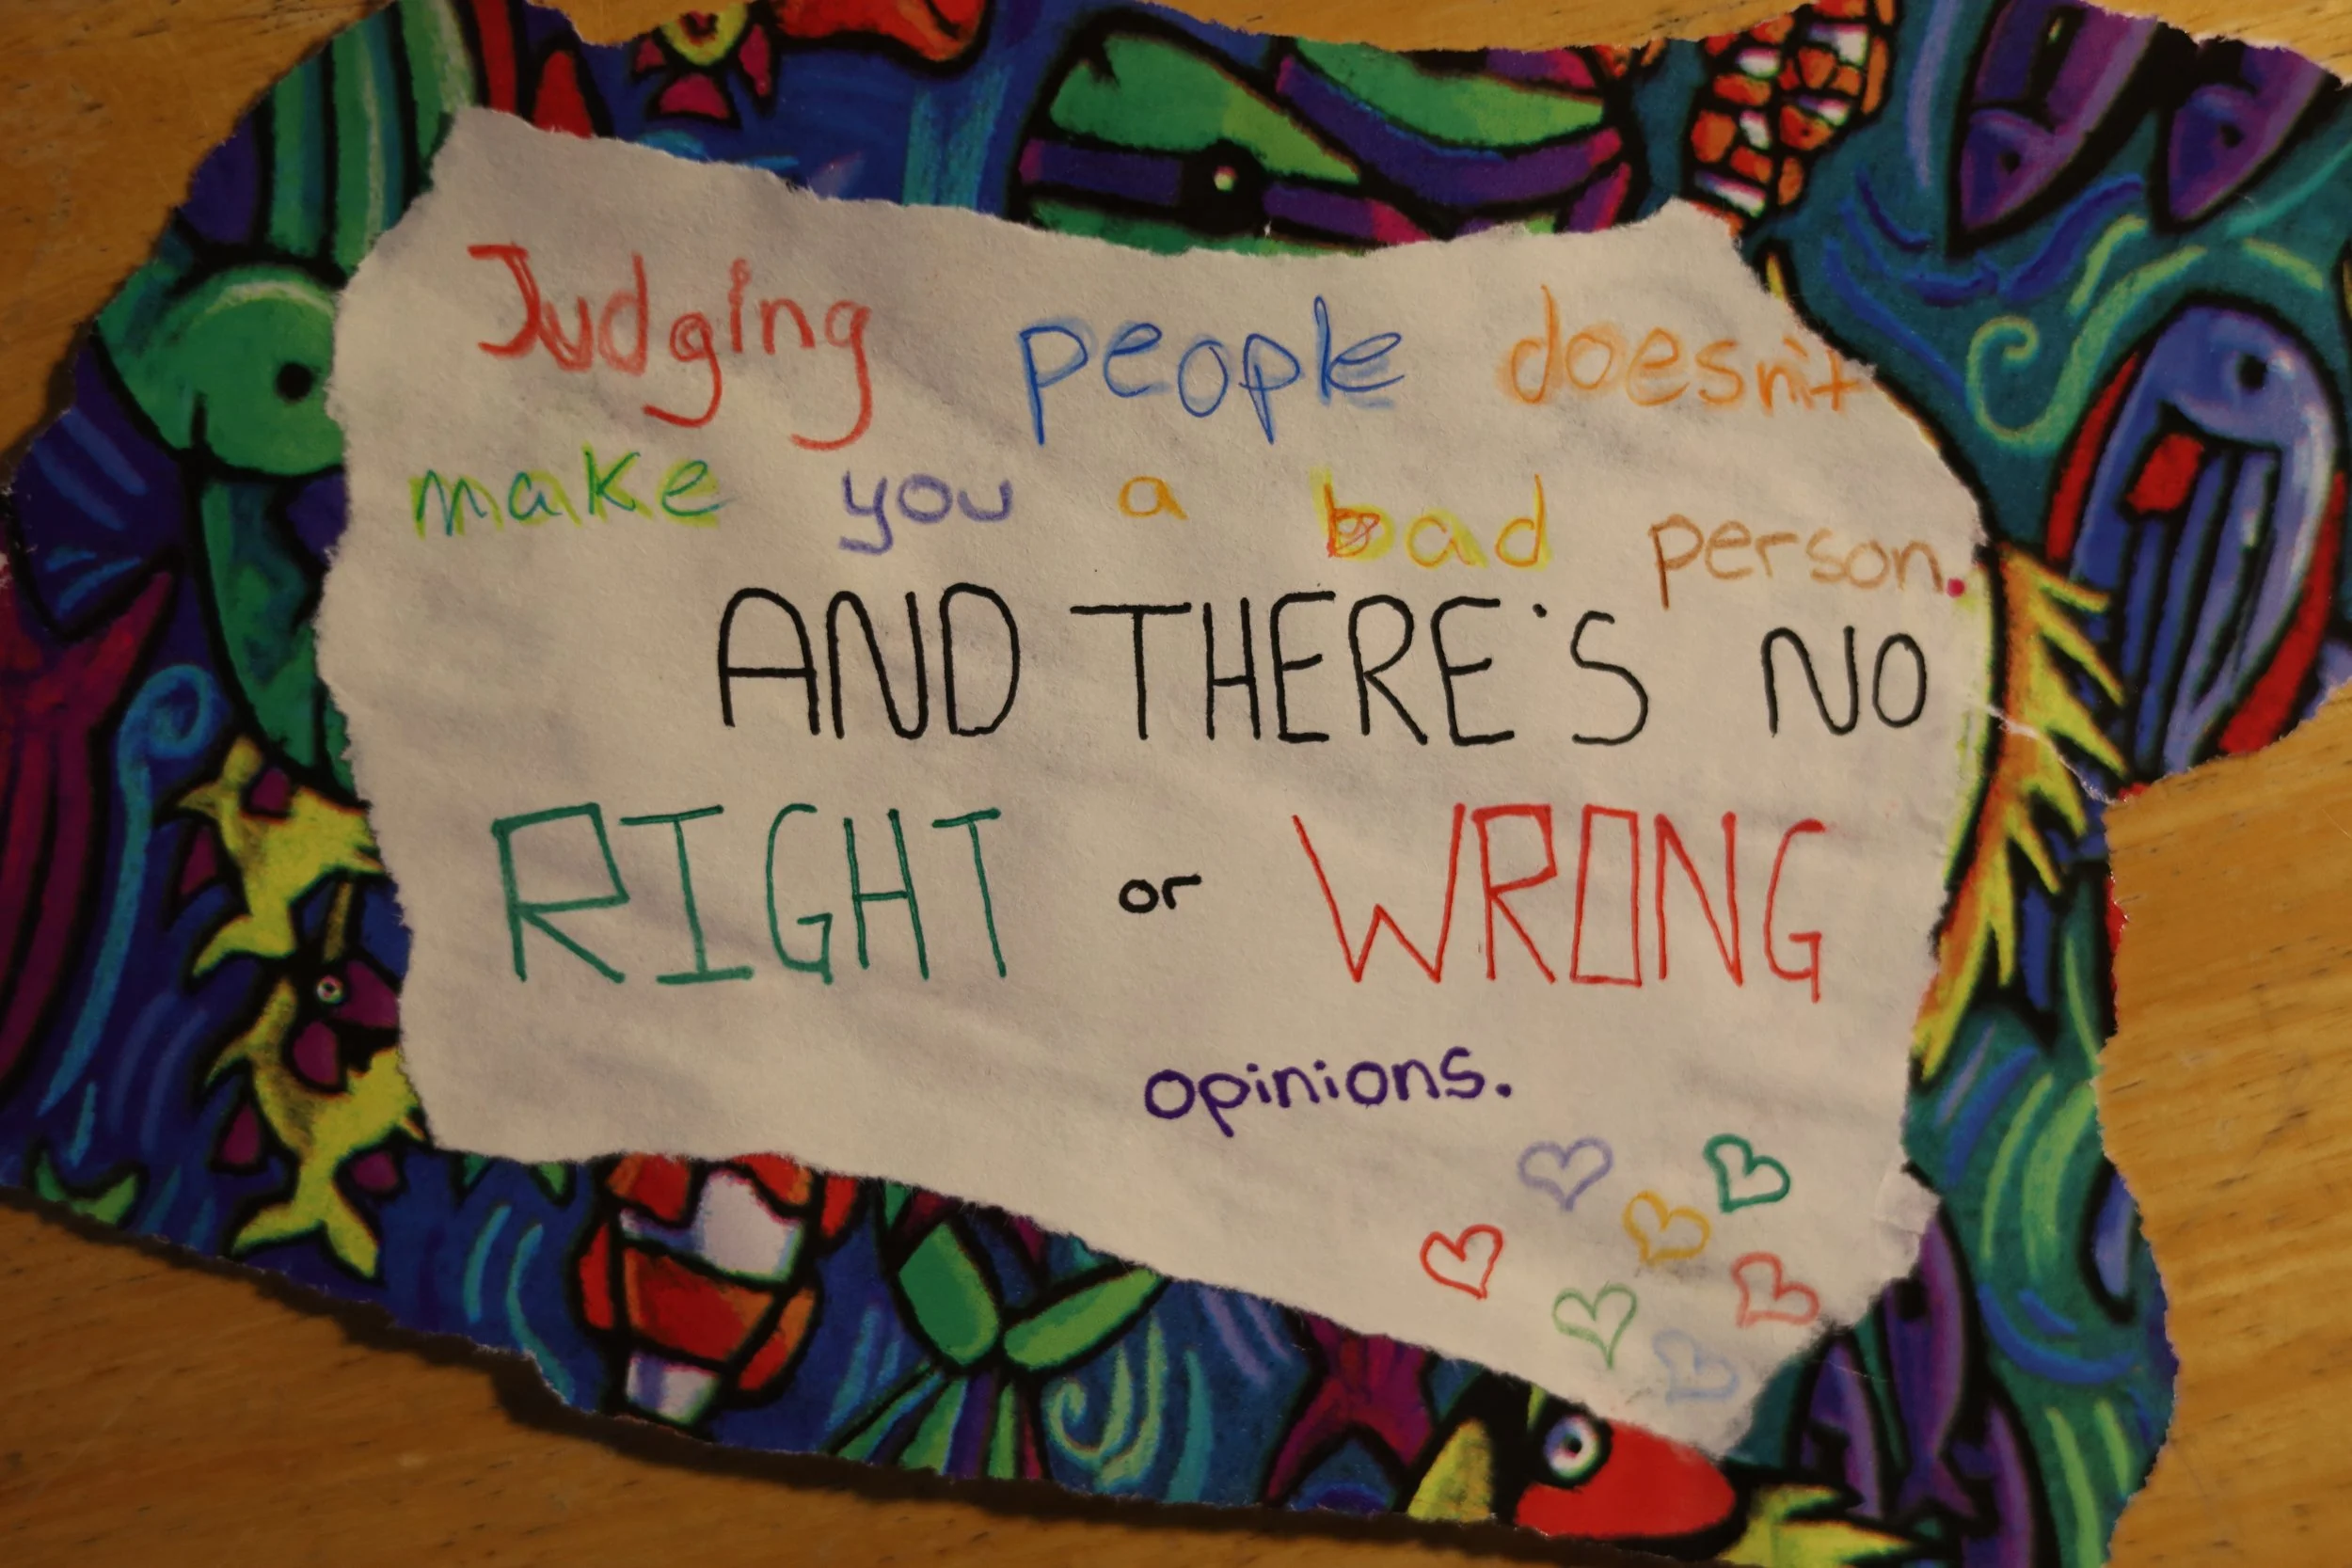 Judging people doesn't
make you a bad person.
AND THERE'S NO
RIGHT or WRONG
opinions.